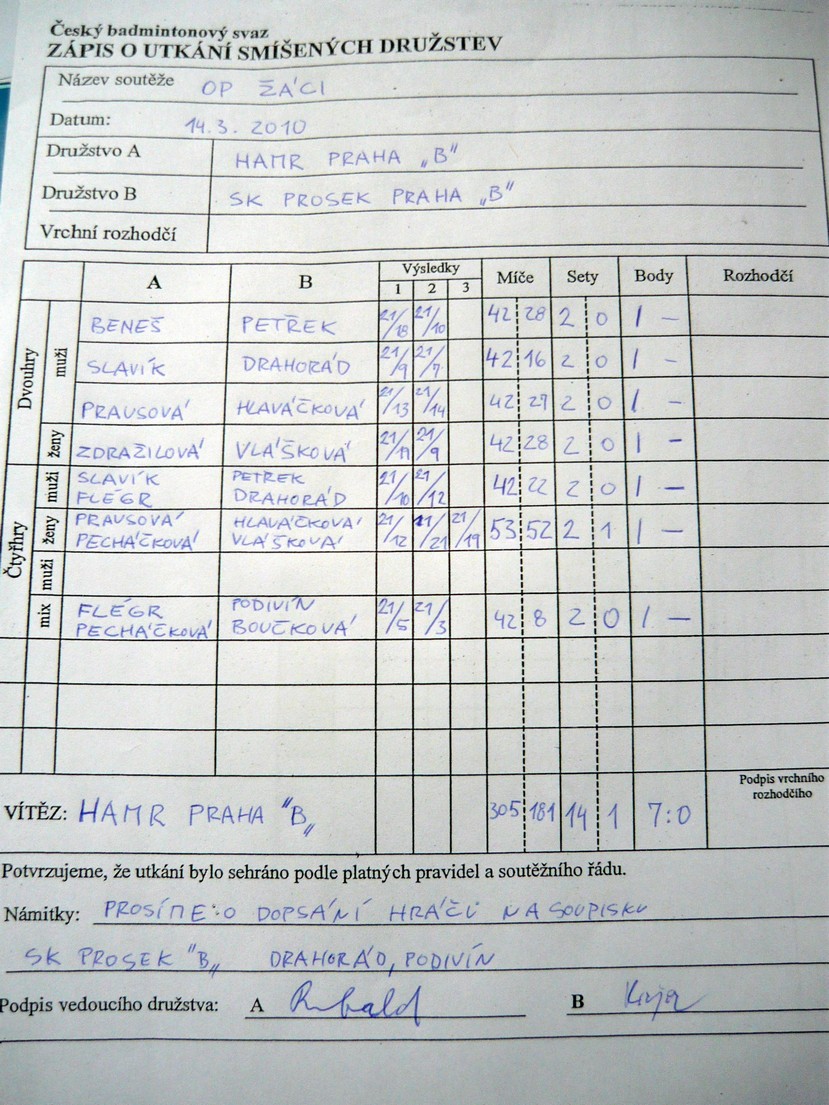 Český badmintonový svaz
ZÁPIS O UTKÁNÍ SMÍŠENÝCH DRUŽSTEV
Název soutěže OP ŽÁCI
Datum: 14.3. 2010
Družstvo A HAMR PRAHA „B"
Družstvo B SK PROSEK PRAHA „B"
Vrchní rozhodčí
A B Výsledky 1 2 3 Míče Sety Body Rozhodčí
Dvouhry
muži
BENEŠ PETŘEK 21/18 21/10 42 28 2 0 1 –
SLAVÍK DRAHORÁD 21/9 21/7 42 16 2 0 1 –
PRAUSOVÁ HLAVÁČKOVÁ 21/13 21/14 42 27 2 0 1 –
ženy
ZDRAŽILOVÁ VLÁŠKOVÁ 21/19 21/9 42 28 2 0 1 –
Čtyřhry
muži
SLAVÍK PETREK
FLÉGR DRAHORÁD 21/10 21/12 42 22 2 0 1 –
ženy
PRAUSOVÁ HLAVÁČKOVÁ
PECHÁČKOVÁ VLÁŠKOVÁ 21/12 11/21 21/19 53 52 2 1 1 –
muži
mix
FLÉGR PODIVÍN
PECHÁČKOVÁ BOUČKOVÁ 21/5 21/3 42 8 2 0 1 –
VÍTĚZ: HAMR PRAHA "B„ 305 181 14 1 7:0
Podpis vrchního
rozhodčího
Potvrzujeme, že utkání bylo sehráno podle platných pravidel a soutěžního řádu.
Námitky: PROSÍME O DOPSÁNÍ HRÁČŮ NA SOUPISKU
SK PROSEK "B„ DRAHORÁD, PODIVÍN
Podpis vedoucího družstva: A B